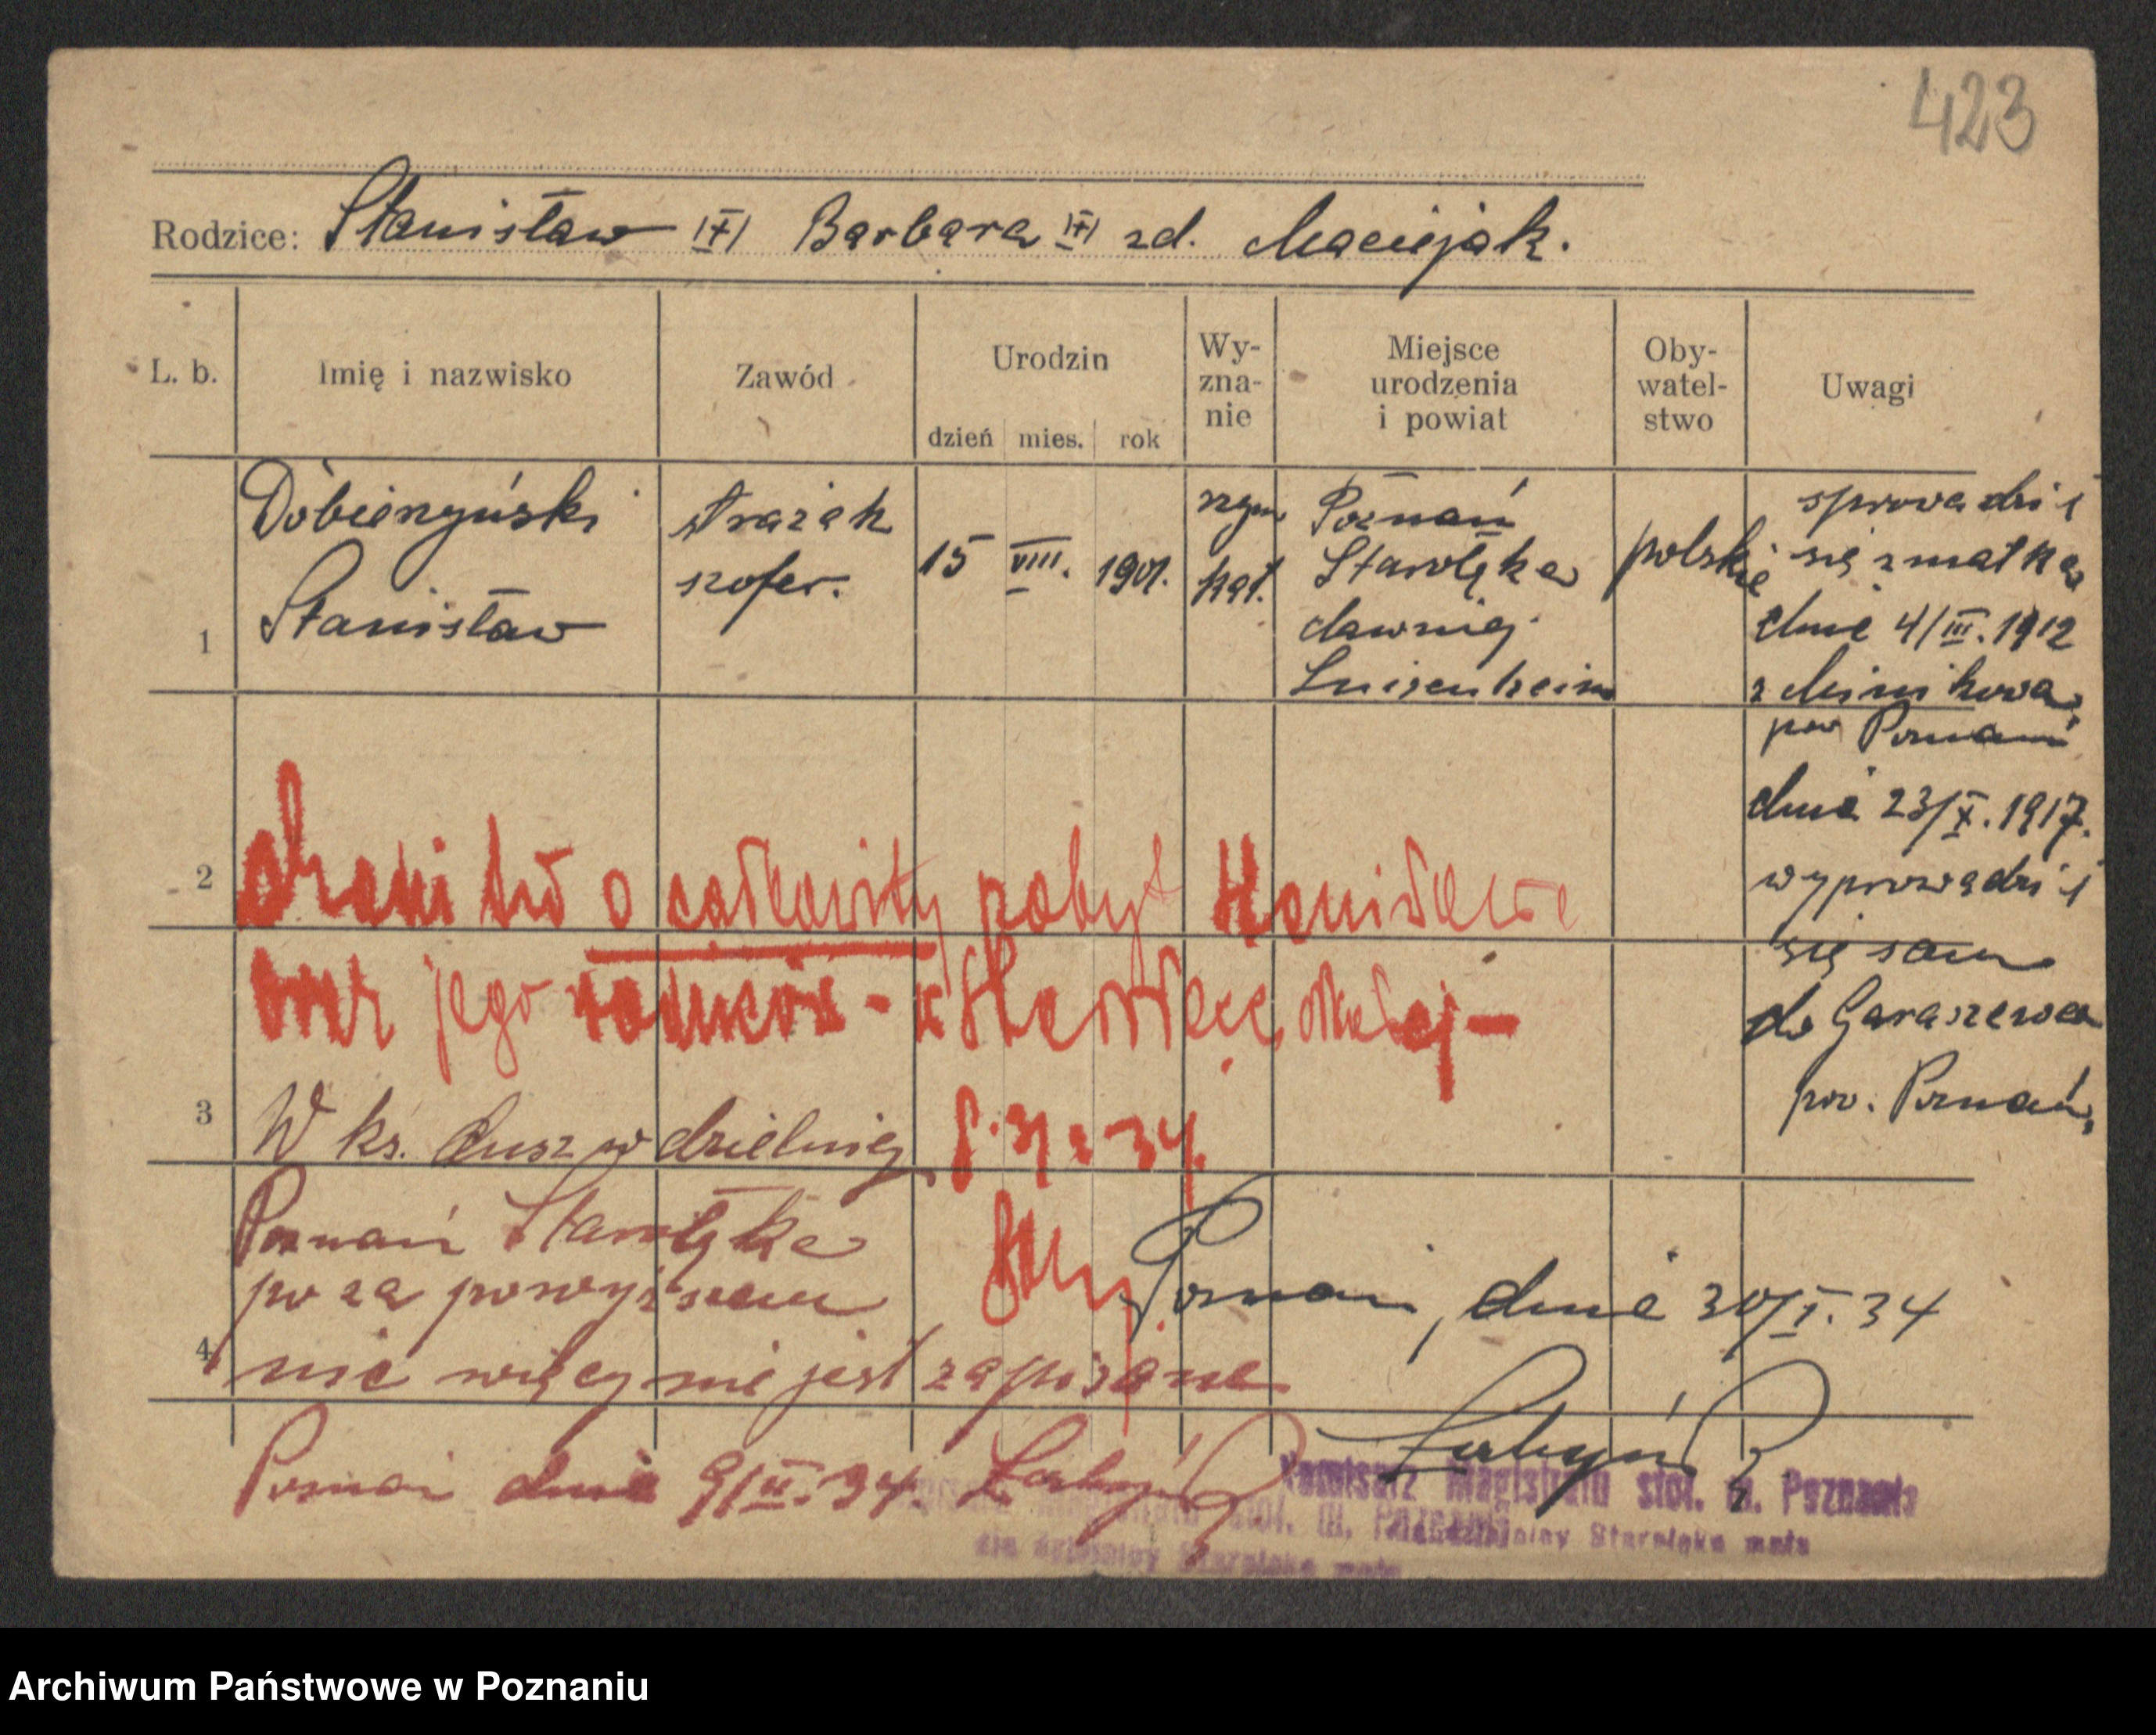 423
Rodzice: Stanisław |+| Barbara |+| zd. Maciejak.
L. b.
Imię i nazwisko
Zawód
Urodzin
dzień mies. rok
Wy-
zna-
nie
Miejsce
urodzenia
i powiat
Oby-
watel-
stwo
Uwagi
1
Dobierzyński
Stanisław
strażak
szofer.
15 VIII. 1901.
rzym
kat.
Poznań
Starołęka
dawniej
Luisenheim
polskie
sprowadził
się z matką
dnia 4/III. 1912
z Minikowa,
pow Poznań
dnia 23/X. 1917.
wyprowadził
się sam
do Garaszewa
pow. Poznań,
2
o całkowity pobyt Stanisława
oraz jego rodziców - w Starołęce małej -
3
W ks. dusz w dzielnicy
Poznań Starołęka
poza powyższem
4
nic więcej nie jest zapisane
Poznań dnia 9/II. 34.
Poznań, dnia 30/I. 34
Komisarz Magistratu stoł. m. Poznania
dzielnicy Starołęka mała
stoł. m. Poznania
dla dzielnicy Starołęka mała
Archiwum Państwowe w Poznaniu